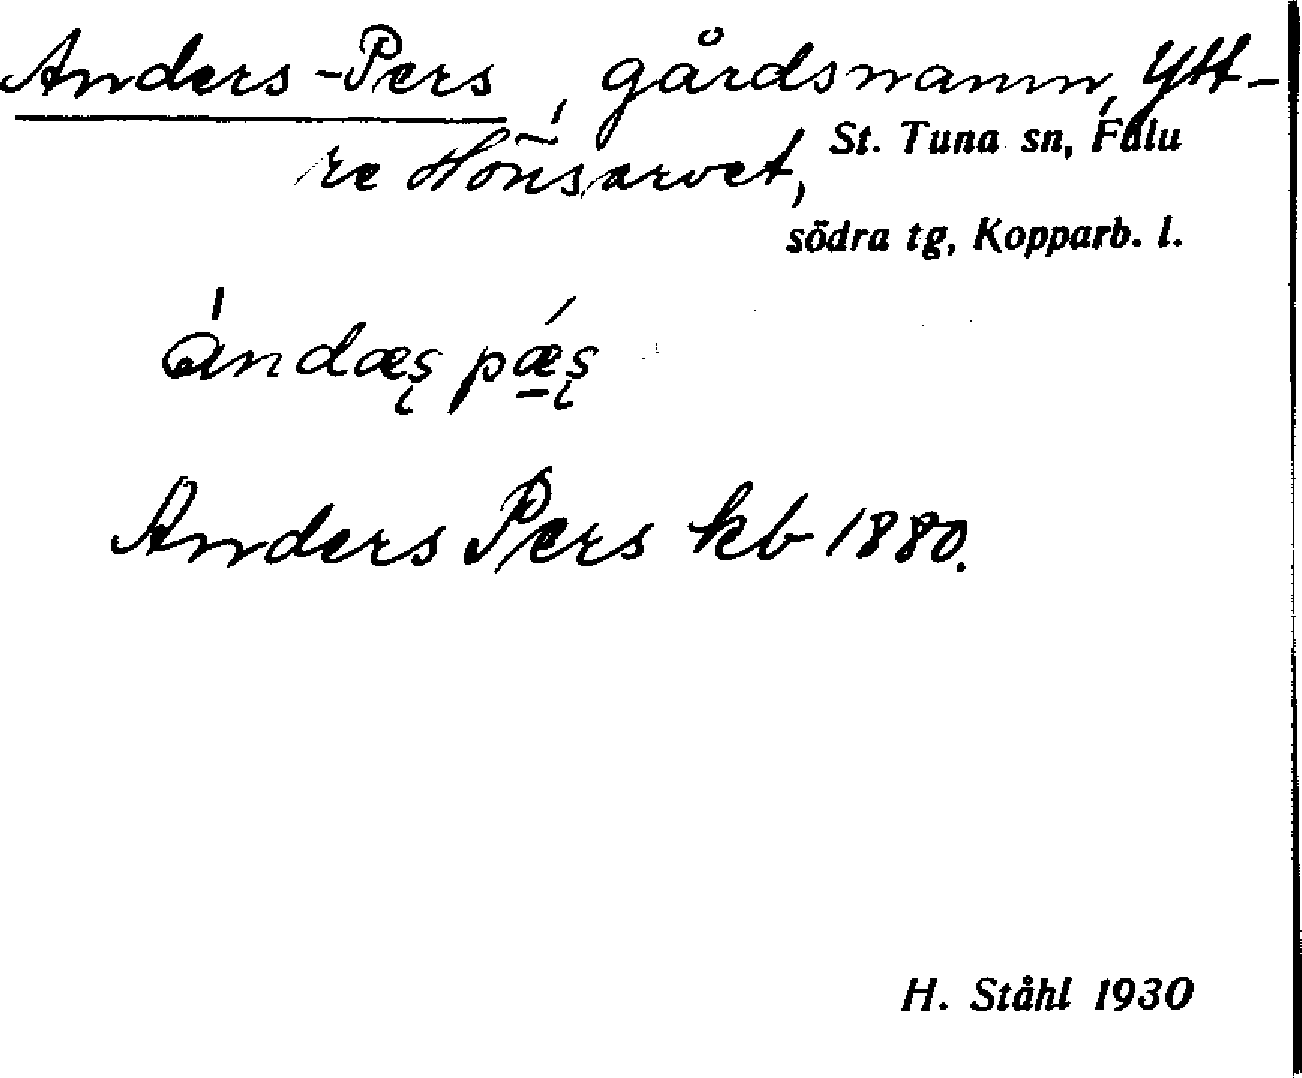 Anders-Pers, gårdsnamn, Ytt-
re Hönsarvet, St. Tuna sn, Falu
södra tg, Kopparb. l.
ándæş pǽ̱ş
Anders Pers kb 1880.
H. Ståhl 1930